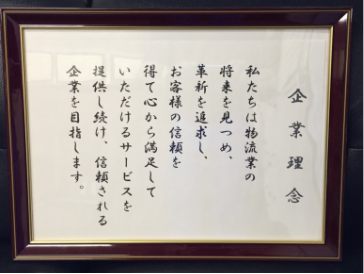 企業理念
私たちは物流業の
将来を見つめ、
革新を追求し、
お客様の信頼を
得て心から満足して
いただけるサービスを
提供し続け、信頼される
企業を目指します。